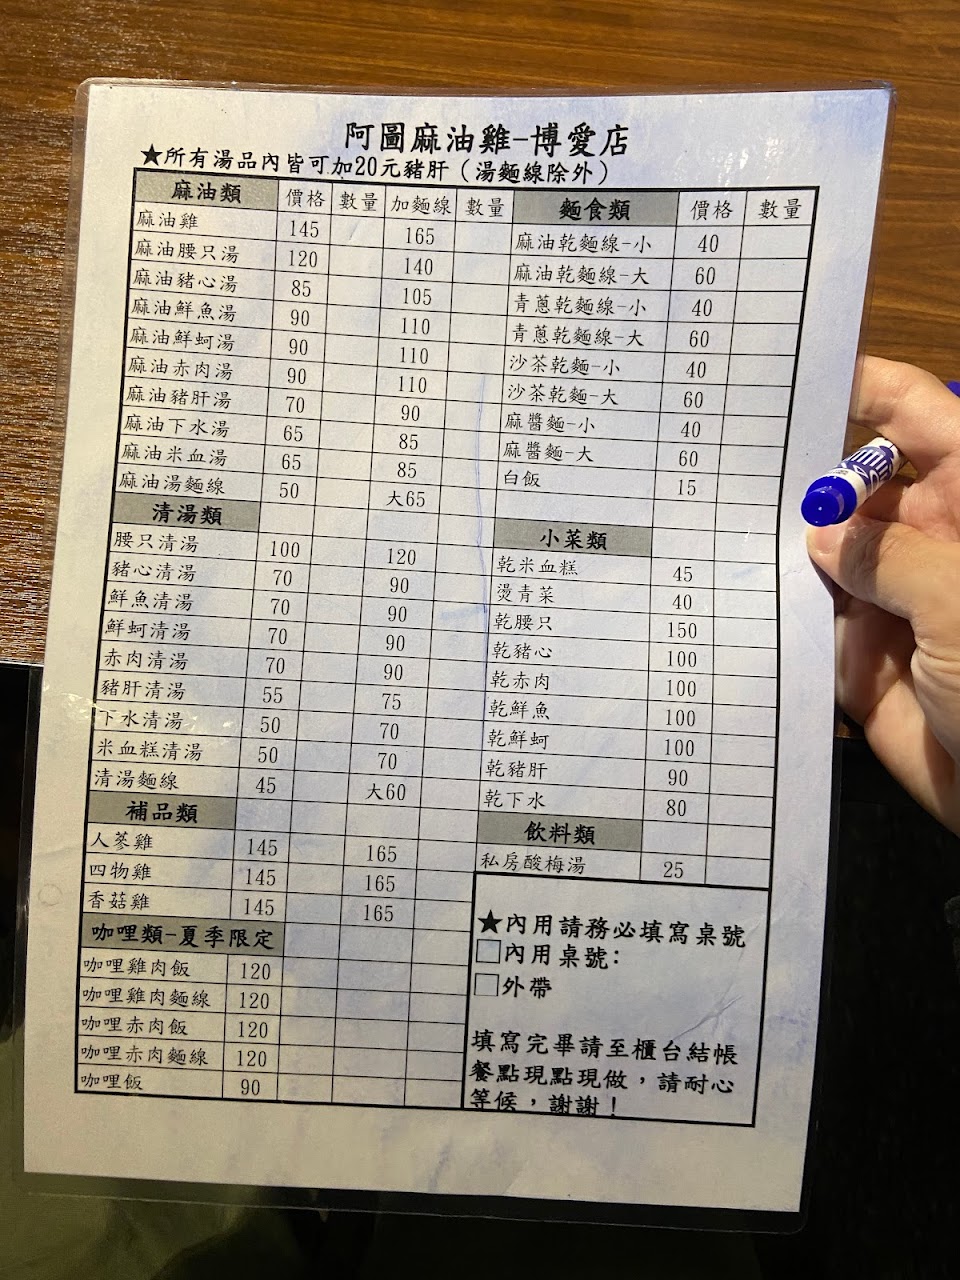 阿圖麻油雞-博愛店
★所有湯品內皆可加20元豬肝（湯麵線除外）
麻油類 價格 數量 加麵線 數量
麻油雞 145 165
麻油腰只湯 120 140
麻油豬心湯 85 105
麻油鮮魚湯 90 110
麻油鮮蚵湯 90 110
麻油赤肉湯 90 110
麻油豬肝湯 70 90
麻油下水湯 65 85
麻油米血湯 65 85
麻油湯麵線 50 大65
清湯類
腰只清湯 100 120
豬心清湯 70 90
鮮魚清湯 70 90
鮮蚵清湯 70 90
赤肉清湯 70 90
豬肝清湯 55 75
下水清湯 50 70
米血糕清湯 50 70
清湯麵線 45 大60
補品類
人蔘雞 145 165
四物雞 145 165
香菇雞 145 165
咖哩類-夏季限定
咖哩雞肉飯 120
咖哩雞肉麵線 120
咖哩赤肉飯 120
咖哩赤肉麵線 120
咖哩飯 90
麵食類 價格 數量
麻油乾麵線-小 40
麻油乾麵線-大 60
青蔥乾麵線-小 40
青蔥乾麵線-大 60
沙茶乾麵-小 40
沙茶乾麵-大 60
麻醬麵-小 40
麻醬麵-大 60
白飯 15
小菜類
乾米血糕 45
燙青菜 40
乾腰只 150
乾豬心 100
乾赤肉 100
乾鮮魚 100
乾鮮蚵 100
乾豬肝 90
乾下水 80
飲料類
私房酸梅湯 25
★內用請務必填寫桌號
□內用桌號：
□外帶
填寫完畢請至櫃台結帳
餐點現點現做，請耐心
等候，謝謝！